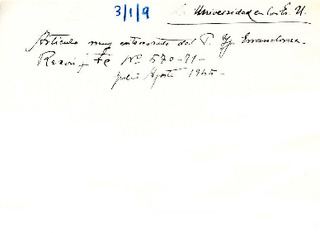 3/1/9
Universidad en los E. U.
Artículo muy interesante del P. Errandonea.
Razón y Fe Nº 570-71-
julio Agosto 1945-